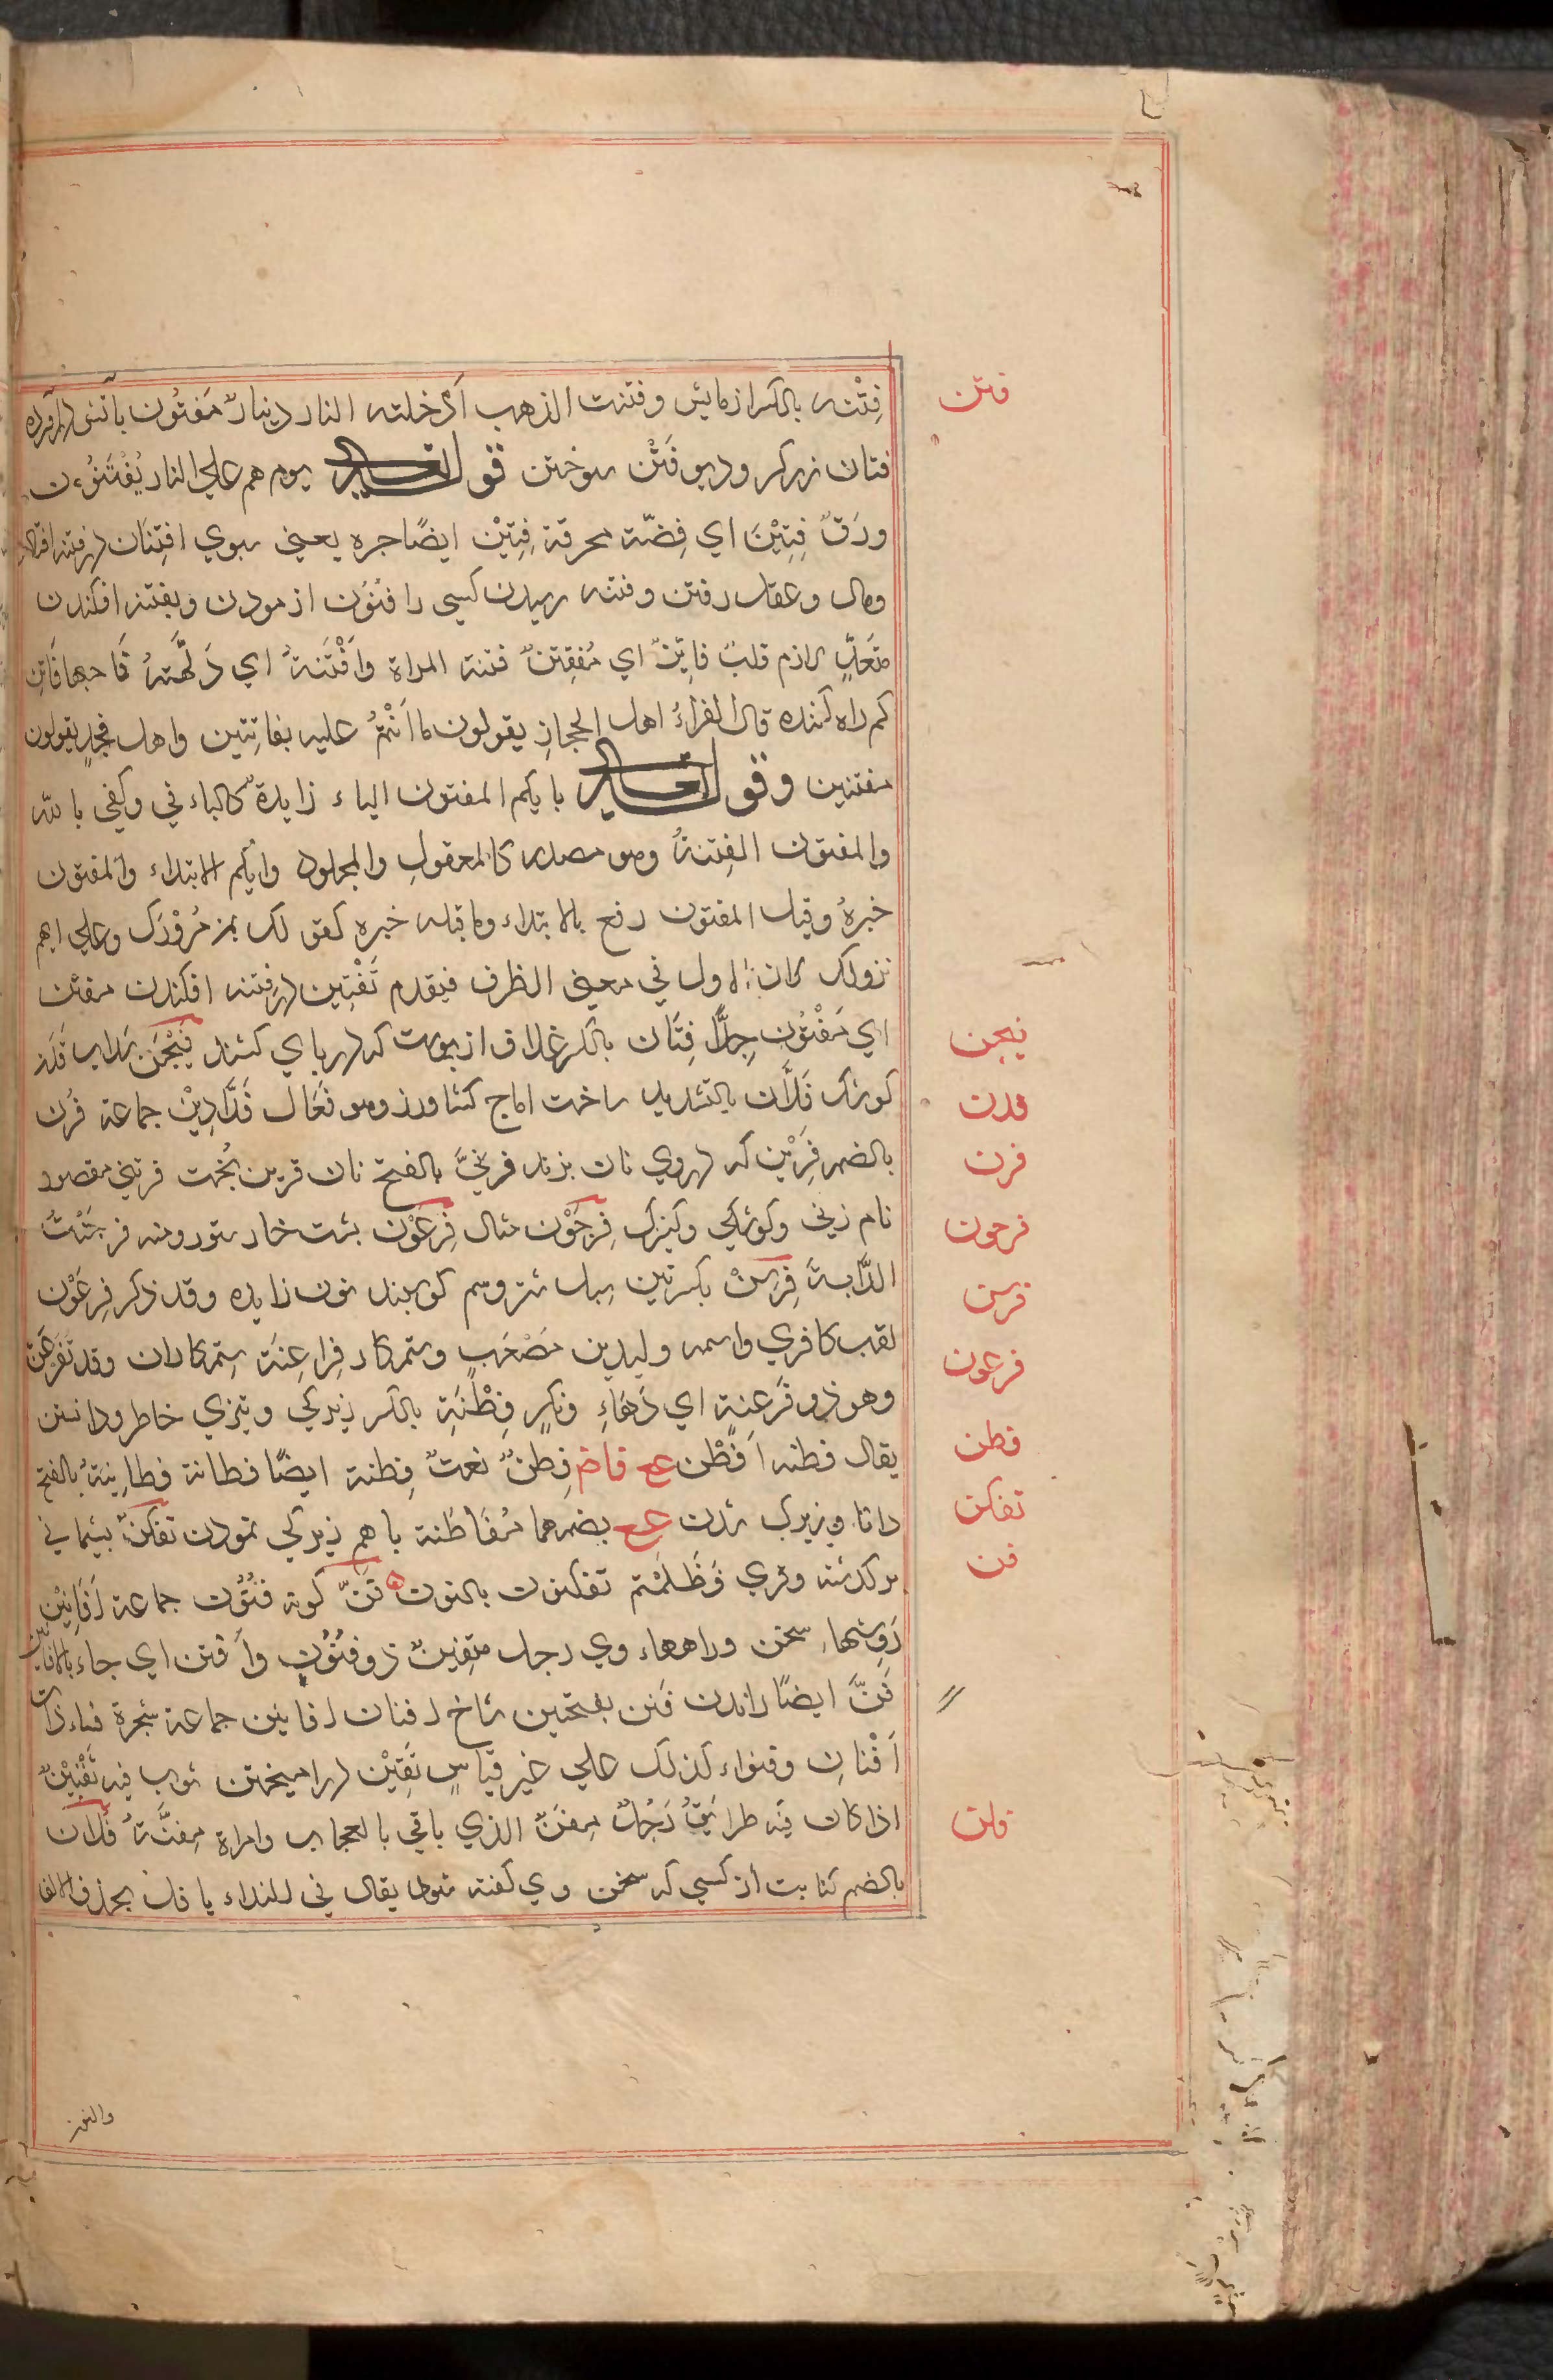 فتن
فِتْنه بالكسر ازمايش وفتنت الذهب اَدْخلته النار دينارٌ مَفتُون باتش درآورده
فتان زركر وديو فَتْن سوختن قوله تعالى يوم هم على النار يُفْتَنُون
ورَقٌ فِتِيْن اي فِضّة محرقة فِتِيْن ايضًا جره يعني سوي افتِتَان در فتنه افتادن
ومال وعقل رفتن وفتنه رسيدن كسي را فتُوْن ازمودن وبفتنه افكندن
متَعَدٍّ لازم قلبٌ فاتِنٌ اي مُفتِتنٌ فتنة المراة وافْتَنَتهُ اي دَلَّهَتهُ فاتِن
كم راه كننده قال الفراءُ اهل الحجازِ يقولون ما اَنْتُمْ عليه بفاتِنين واهل نجدٍ يقولون
مفتنين وقوله تعالى بايكم المفتون الباء زايدةٌ كالباء في وكفي بالله
والمفتون الفِتنةُ وهو مصدر كالمعقولِ والمجلود وايكم الابتداء والمفتون
خبرهُ وقيل المفتون رفع بالابتداء وما قبله خبره كقولك بمن مُرُوْرُك وعلي ايهم
نزولك لان الاول في معني الظرف فيقدم تَفْتِين در فتنه افكندن مفتن
فيجن
اي مَفْتُون جِدًّا فِتَان بالكسر غلاف از پوست كه در پاي كشند فَيْجَن سداب فَدَن
فدن
كوشك فَدَّان بالتشديد ساخت اماج كشاورز وهو فَعّال فَدَّادِيْن جماعة فُرْن
فرن
بالضم فِرَيْن كه دروي نان بزند فرنيَّ بالفتح نان فرين پخت فرتني مقصور
فرجون
نام زني وكوشكي وكنيزك فِرجَوْن مثال فِرعَوْن بشت خار ستور ومنه فرجَنْتُ
فرسن
الدَّابةَ فِرسِنْ بكسرتين سبل شتر وسم كوسبند نون زايده وقد ذكر فِرعَوْن
فرعون
لقب كافري واسمه وليدبن مُصْعَب وستمكار فراعِنَة ستمكاران وقد تَفَرعَن
وهو ذو فَرعنةٍ اي دَهاءٍ ونُكرٍ فِطْنَة بالكسر زيركي وتيزي خاطر ودانستن
فطن
يقال فطنه اَفْطُن ع ع فاض فِطِنٌ نعتٌ فِطنة ايضًا فطانة فطانِيَةٌ بالفتح
تفكن
دانا وزيرك شدن ع ع بضمهما مُفاطَنة با هم زيركي نمودن تفكّن پشيماني
فن
بر كذشته وقري فَظَلْتم تفكنون بالنون فَنّ كونه فُنُوْن جماعة اَفانِيْن
رَوِشها سخن وراهها وي رجل متفنن ذو فُنُون وافتن اي جاء بالافانين
فَنَّ ايضًا راندن فنن بفتحتين شاخ افنان افانين جماعة شجرة فناء ذات
اَفْنان وفنواء كذلك علي غير قياسٍ تَفنِيْن درآميختن ثوب فيه تَفْنِيْنٌ
فلن
اذا كان فيه طرائِقُ رَجُلٌ مِفَنٌ الذي ياتي بالعجايب وامراة مِفنَّةٌ فُلان
بالضم كنايت از كسي كه سخن وي كفته شود يقال في النداء يا فل بحذف الالف
والنون